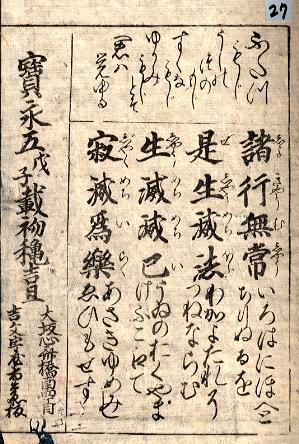 27
ふたつ
もし
うしの
つの
もし
すくな
もし
ゆかみ
もしとそ
君ハ
覚ゆる
諸行無常
いろはにほへと
ちりぬるを
是生滅法
わかよたれそ
つねならむ
生滅滅已
うゐのおくやま
けふこえて
寂滅為樂
あさきゆめみし
ゑひもせす
寶永五戊子載初穐吉旦
大坂心斎橋南
吉文字屋市兵衛板